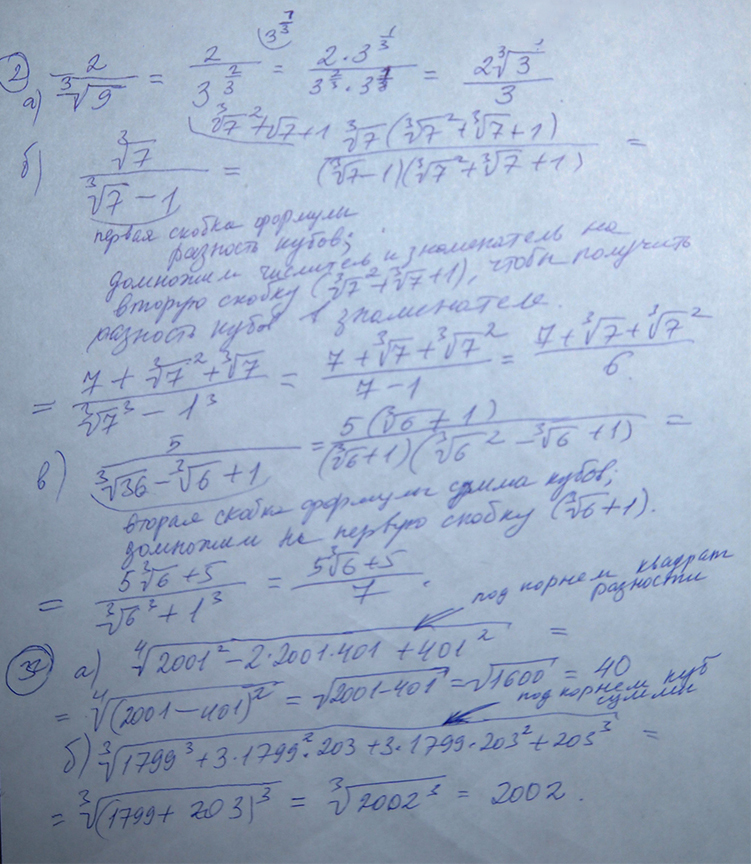 3^{1/3}
② а) 2/∛9 = 2/3^{2/3} = 2·3^{1/3}/3^{2/3}·3^{1/3} = 2∛3/3
∛7²+√7+1
б) ∛7/(∛7-1) = ∛7(∛7²+∛7+1)/(∛7-1)(∛7²+∛7+1) =
первая скобка формулы
разность кубов;
домножим числитель и знаменатель на
вторую скобку (∛7²+∛7+1), чтобы получить
разность кубов в знаменателе.
= (7+∛7²+∛7)/(∛7³-1³) = (7+∛7+∛7²)/(7-1) = (7+∛7+∛7²)/6
в) 5/(∛36-∛6+1) = 5(∛6+1)/(∛6+1)(∛6²-∛6+1) =
вторая скобка формулы сумма кубов;
домножим на первую скобку (∛6+1).
= (5∛6+5)/(∛6³+1³) = (5∛6+5)/7.
под корнем квадрат
разности
а) ∜(2001²-2·2001·401+401²) =
= ∜(2001-401)² = √(2001-401) = √1600 = 40
под корнем куб
суммы
б) ∛(1799³+3·1799²·203+3·1799·203²+203³) =
= ∛(1799+203)³ = ∛2002³ = 2002.